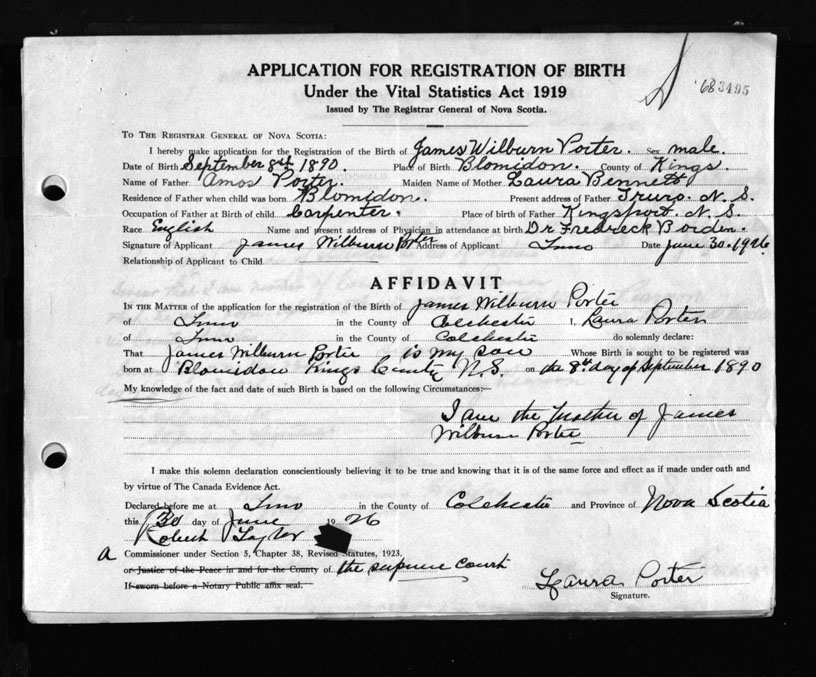 APPLICATION FOR REGISTRATION OF BIRTH
Under the Vital Statistics Act 1919
Issued by The Registrar General of Nova Scotia.
To The Registrar General of Nova Scotia:
I hereby make application for the Registration of the Birth of James Wilburn Porter. Sex male.
Date of Birth September 8th 1890. Place of Birth Blomidon. County of Kings.
Name of Father Amos Porter. Maiden Name of Mother Laura Bennett
Residence of Father when child was born Blomidon. Present address of Father Truro. N. S.
Occupation of Father at Birth of child Carpenter. Place of birth of Father Kingsport. N. S.
Race English Name and present address of Physician in attendance at birth Dr Fredreck Borden.
Signature of Applicant James Wilburn Porter Address of Applicant Truro Date June 30. 1926
Relationship of Applicant to Child
AFFIDAVIT
In the Matter of the application for the registration of the Birth of James Wilburn Porter
of Truro in the County of Colchester I, Laura Porter
of Truro in the County of Colchester do solemnly declare:
That James Wilburn Porter is my son Whose Birth is sought to be registered was
born at Blomidon Kings County N.S. on the 8th day of September 1890
My knowledge of the fact and date of such Birth is based on the following Circumstances:—
I am the Mother of James
Wilburn Porter
I make this solemn declaration conscientiously believing it to be true and knowing that it is of the same force and effect as if made under oath and
by virtue of The Canada Evidence Act.
Declared before me at Truro in the County of Colchester and Province of Nova Scotia
this 30 day of June 1926
Robert Taylor
a Commissioner under Section 5, Chapter 38, Revised Statutes, 1923.
or Justice of the Peace in and for the County of the supreme court
If sworn before a Notary Public affix seal.
Laura Porter
Signature.